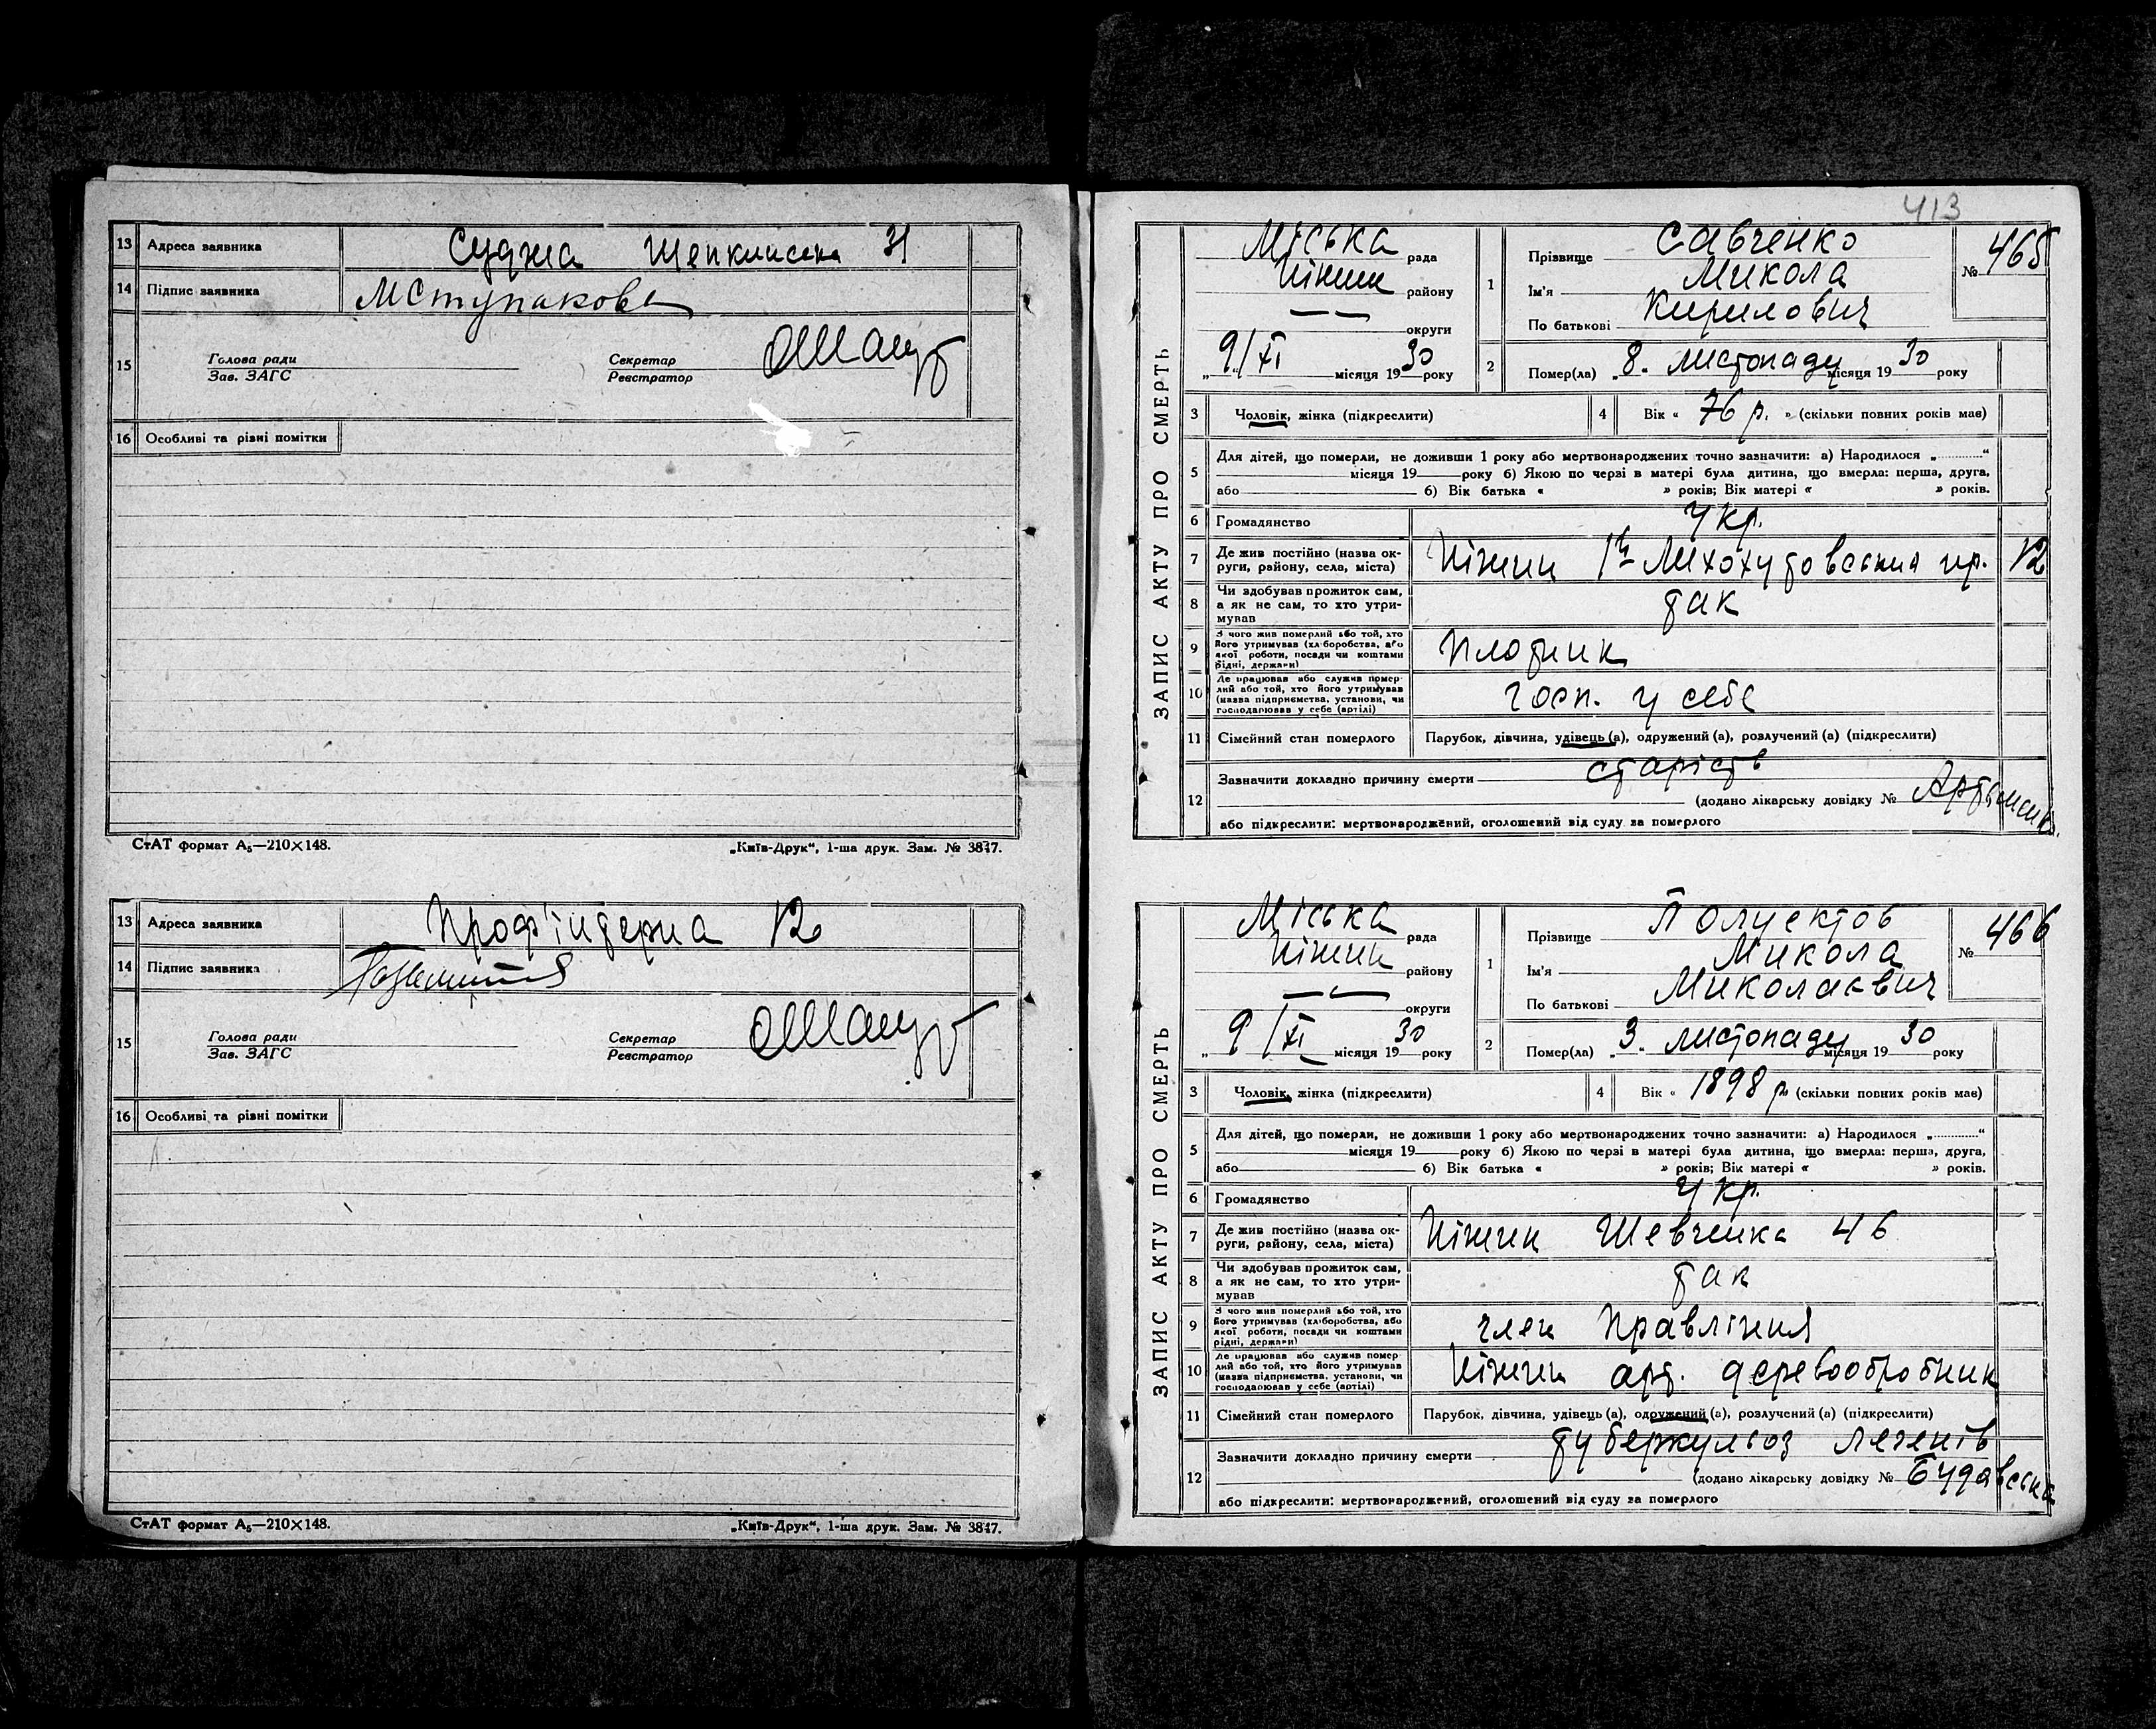 13 Адреса заявника Суджа 31
14 Підпис заявника МСтупакова
15 Голова ради
Зав. ЗАГС
Секретар
Реєстратор
16 Особливі та різні помітки
СтАТ формат А₅—210×148. „Київ-Друк“, 1-ша друк. Зам. № 3847.
13 Адреса заявника Проф'інтерна 12
14 Підпис заявника
15 Голова ради
Зав. ЗАГС
Секретар
Реєстратор
16 Особливі та різні помітки
СтАТ формат А₅—210×148. „Київ-Друк“, 1-ша друк. Зам. № 3847.
413
ЗАПИС АКТУ ПРО СМЕРТЬ
Міська рада
Ніжин району
— — округи
„9/XI місяця 1930 року
1 Прізвище Савченко
Ім'я Микола
По батькові Кирилович
№ 465
2 Помер(ла) „8„ листопаду місяця 1930 року
3 Чоловік, жінка (підкреслити)
4 Вік « 76 р. » (скільки повних років має)
5 Для дітей, що померли, не доживши 1 року або мертвонароджених точно зазначити: а) Народилося „............“
місяця 19 року б) Якою по черзі в матері була дитина, що вмерла: перша, друга,
або б) Вік батька « » років; Вік матері « » років.
6 Громадянство Укр.
7 Де жив постійно (назва округи, району, села, міста) Ніжин 12
8 Чи здобував прожиток сам, а як не сам, то хто утримував так
9 З чого жив померлий або той, хто його утримував (хліборобства, або якої роботи, посади чи коштами рідні, держави) Плотник
10 Де працював або служив померлий або той, хто його утримував (назва підприємства, установи, чи господарював у себе (артілі) госп. у себе
11 Сімейний стан померлого Парубок, дівчина, удівець (а), одружений (а), розлучений (а) (підкреслити)
12 Зазначити докладно причину смерти старість
(додано лікарську довідку №
або підкреслити: мертвонароджений, оголошений від суду за померлого
ЗАПИС АКТУ ПРО СМЕРТЬ
Міська рада
Ніжин району
— — округи
„9/XI місяця 1930 року
1 Прізвище Полуектов
Ім'я Микола
По батькові Миколаєвич
№ 466
2 Помер(ла) „3„ листопаду місяця 1930 року
3 Чоловік, жінка (підкреслити)
4 Вік « 1898 р. (скільки повних років має)
5 Для дітей, що померли, не доживши 1 року або мертвонароджених точно зазначити: а) Народилося „............“
місяця 19 року б) Якою по черзі в матері була дитина, що вмерла: перша, друга,
або б) Вік батька « » років; Вік матері « » років.
6 Громадянство Укр.
7 Де жив постійно (назва округи, району, села, міста) Ніжин Шевченка 46
8 Чи здобував прожиток сам, а як не сам, то хто утримував так
9 З чого жив померлий або той, хто його утримував (хліборобства, або якої роботи, посади чи коштами рідні, держави) член Правління
10 Де працював або служив померлий або той, хто його утримував (назва підприємства, установи, чи господарював у себе (артілі) Ніжин арт. деревообробник
11 Сімейний стан померлого Парубок, дівчина, удівець (а), одружений (а), розлучений (а) (підкреслити)
12 Зазначити докладно причину смерти туберкульоз легенів
(додано лікарську довідку № Будавська
або підкреслити: мертвонароджений, оголошений від суду за померлого